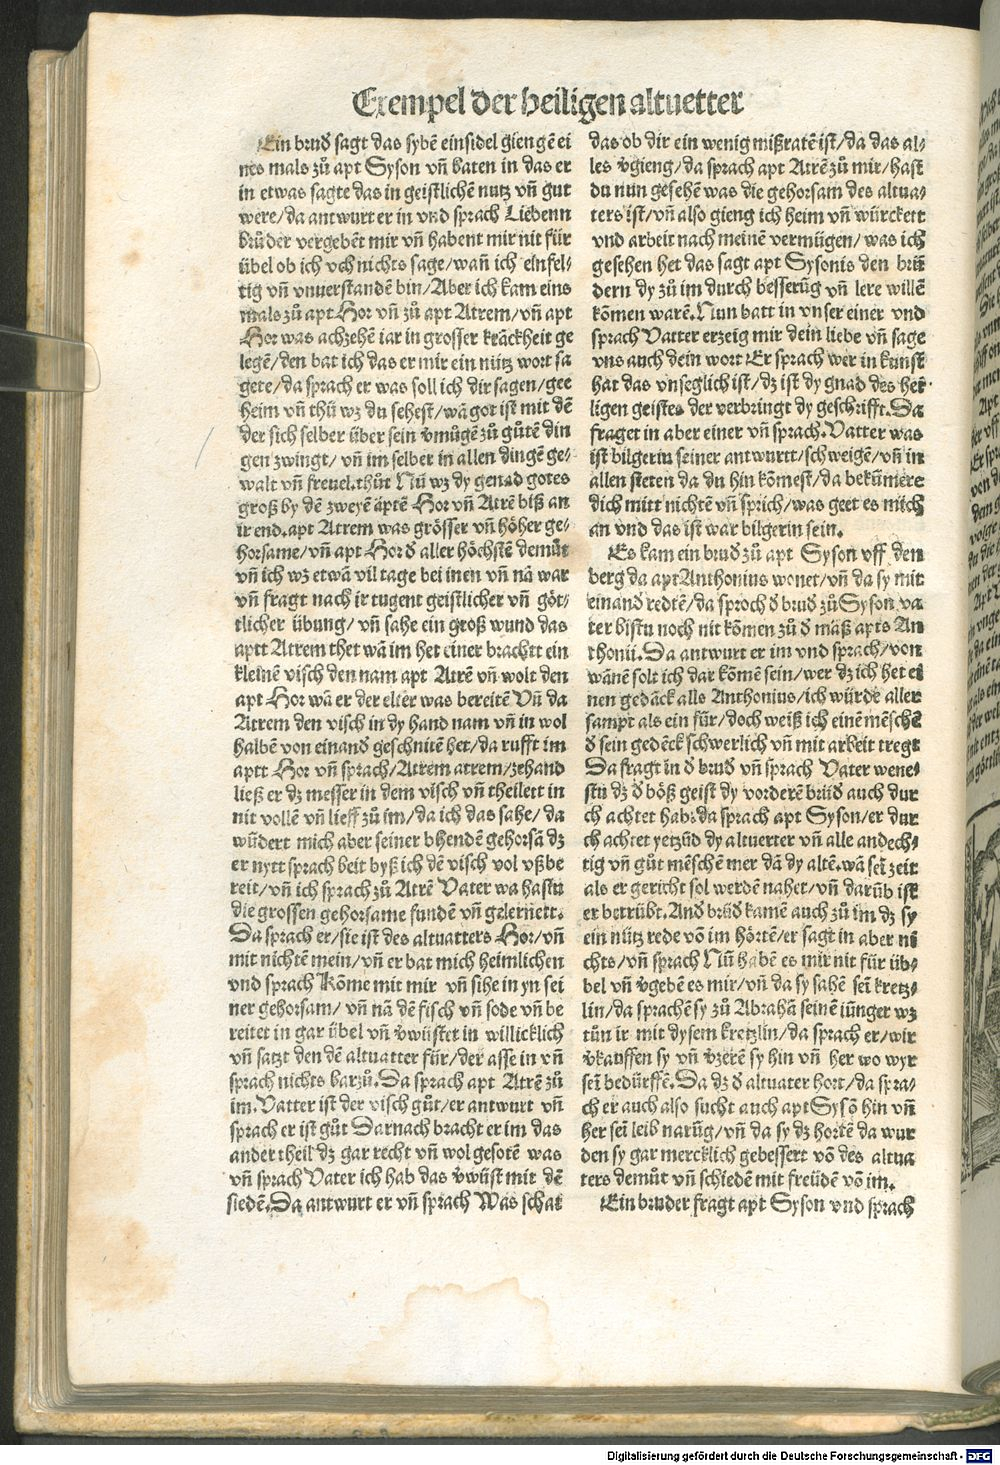 Exempel der heiligen altuetter
Ein brud̄ sagt das sybē einsidel giengē ei
nes mals zů apt Syson vn̄ baten in das er
in etwas sagte das in geistlichē nutz vn̄ gut
were/da antwurt er in vnd sprach Liebenn
brůder vergebēt mir vn̄ habent mir nit für
übel ob ich vch nichts sage/wan̄ ich einfel⸗
tig vn̄ vnuerstandē bin/Aber ich kam eins
mals zů apt Hor vn̄ zů apt Atrem/vn̄ apt
Hor was achzehē iar in grosser kräckheit ge
legē/den bat ich das er mir ein nütz wort sa
gete/da sprach er was soll ich dir sagen/gee
heim vn̄ thů wz du sehest/wā got ist mit dē
der sich selber über sein v̄mügē zů gůtē din
gen zwingt/vn̄ im selber in allen dingē ge⸗
walt vn̄ freuel.thůt Nū wz dy genad gotes
groß by dē zweyē äptē Hor vn̄ Atrē biß an
ir end.apt Atrem was grösser vn̄ höher ge⸗
horsame/vn̄ apt Hor d̄ aller höchstē demůt
vn̄ ich wz etwā vil tage bei inen vn̄ nā war
vn̄ fragt nach ir tugent geistlicher vn̄ göt⸗
tlicher übung/vn̄ sahe ein groß wund das
aptt Atrem thet wā im het einer brachtt ein
kleinē visch den nam apt Atrē vn̄ wolt den
apt Hor wā er der elter was bereitē Vn̄ da
Atrem den visch in dy hand nam vn̄ in wol
halbē von einand̄ geschnitē het/da rufft im
aptt Hor vn̄ sprach/Atrem atrem/zehand
ließ er dz messer in dem visch vn̄ theilett in
nit vollē vn̄ lieff zů im/da ich das sahe/da
wūdert mich aber seiner bhendē gehorsā dz
er nytt sprach beit byß ich dē visch vol vßbe
reit/vn̄ ich sprach zů Atrē Vater wa hastu
die grossen gehorsame fundē vn̄ gelernett.
Da sprach er/sie ist des altuatters Hor/vn̄
mit nichtē mein/vn̄ er bat mich heimlichen
vnd sprach Kōme mit mir vn̄ sihe in yn sei
ner gehorsam/vn̄ nā dē fisch vn̄ sode vn̄ be
reitet in gar übel vn̄ v̄wüstet in willicklich
vn̄ satzt den dē altuatter für/der asse in vn̄
sprach nichts darzů.Da sprach apt Atrē zů
im.Vatter ist der visch gůt/er antwurt vn̄
sprach er ist gůt Darnach bracht er im das
ander theil dz gar recht vn̄ wol gesotē was
vn̄ sprach Vater ich hab das v̄wüst mit dē
siedē.Da antwurt er vn̄ sprach Was schat
das ob dir ein wenig mißratē ist/da das al⸗
les v̄gieng/da sprach apt Atrē zů mir/hast
du nun gesehē was die gehorsam des altua⸗
ters ist/vn̄ also gieng ich heim vn̄ würckett
vnd arbeit nach meinē vermügen/was ich
gesehen het das sagt apt Sysonis den brū
dern dy zů im durch besserūg vn̄ lere willē
kōmen warē.Nun batt in vnser einer vnd
sprach Vatter erzeig mir dein liebe vn̄ sage
vns auch dein wort Er sprach wer in kunst
hat das vnseglich ist/dz ist dy gnad des hei⸗
ligen geistes der verbringt dy geschrifft.Da
fraget in aber einer vn̄ sprach.Vatter was
ist bilgerin seiner antwurtt/schweigē/vn̄ in
allen steten da du hin kōmest/da bekümere
dich mitt nichtē vn̄ sprich/was geet es mich
an vnd das ist war bilgerin sein.
Es kam ein brud̄ zů apt Syson vff den
berg da apt Anthonius wonet/vn̄ da sy mit
einand̄ redtē/da sproch d̄ brud̄ zů Syson va
ter bistu noch nit kōmen zů d̄ mäß apts An
thonii.Da antwurt er im vnd sprach/von
wänē solt ich dar kōmē sein/wer dz ich het ei
nen gedäck alls Anthonius/ich würde aller
sampt als ein für/doch weiß ich einē mēschē
d̄ sein gedēck schwerlich vn̄ mit arbeit tregt
Da fragt in d̄ brud̄ vn̄ sprach Vater wene⸗
stu dz d̄ böß geist dy vorderē brüd̄ auch dur
ch achtet hab:da sprach apt Syson/er dur
ch achtet yetzūd dy altuerter vn̄ alle andech⸗
tig vn̄ gůt mēschē mer dā dy altē.wā sei zeit
als er gericht sol werdē nahet/vn̄ darūb ist
er betrübt.And̄ brüd̄ kamē auch zů im dz sy
ein nütz rede vō im hörtē/er sagt in aber ni
chts/vn̄ sprach Nū habē es mir nit für üb⸗
bel vn̄ v̄gebē es mir/vn̄ da sy sahē sei kretz⸗
lin/da sprachē sy zů Abrahā seinē iünger wz
tůn ir mit dysem kretzlin/da sprach er/wir
v̄kauffen sy vn̄ v̄zerē sy hin vn̄ her wo wyr
sei bedürffē.Da dz d̄ altuater hort/da spra⸗
ch er auch also sucht auch apt Sysō hin vn̄
her sei leib narūg/vn̄ da sy dz hortē da wur
den sy gar mercklich gebessert vō des altua
ters demůt vn̄ schiedē mit freüdē vō im.
Ein bruder fragt apt Syson vnd sprach
Digitalisierung gefördert durch die Deutsche Forschungsgemeinschaft - DFG